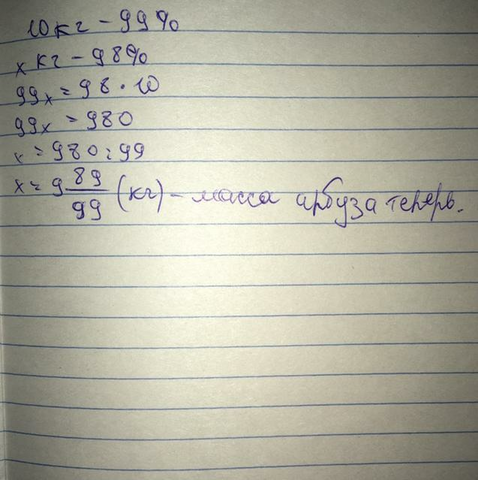 10 кг - 99%
x кг - 98%
99x = 98 · 10
99x = 980
x = 980 : 99
x = 9 89/99 (кг) - масса арбуза теперь.